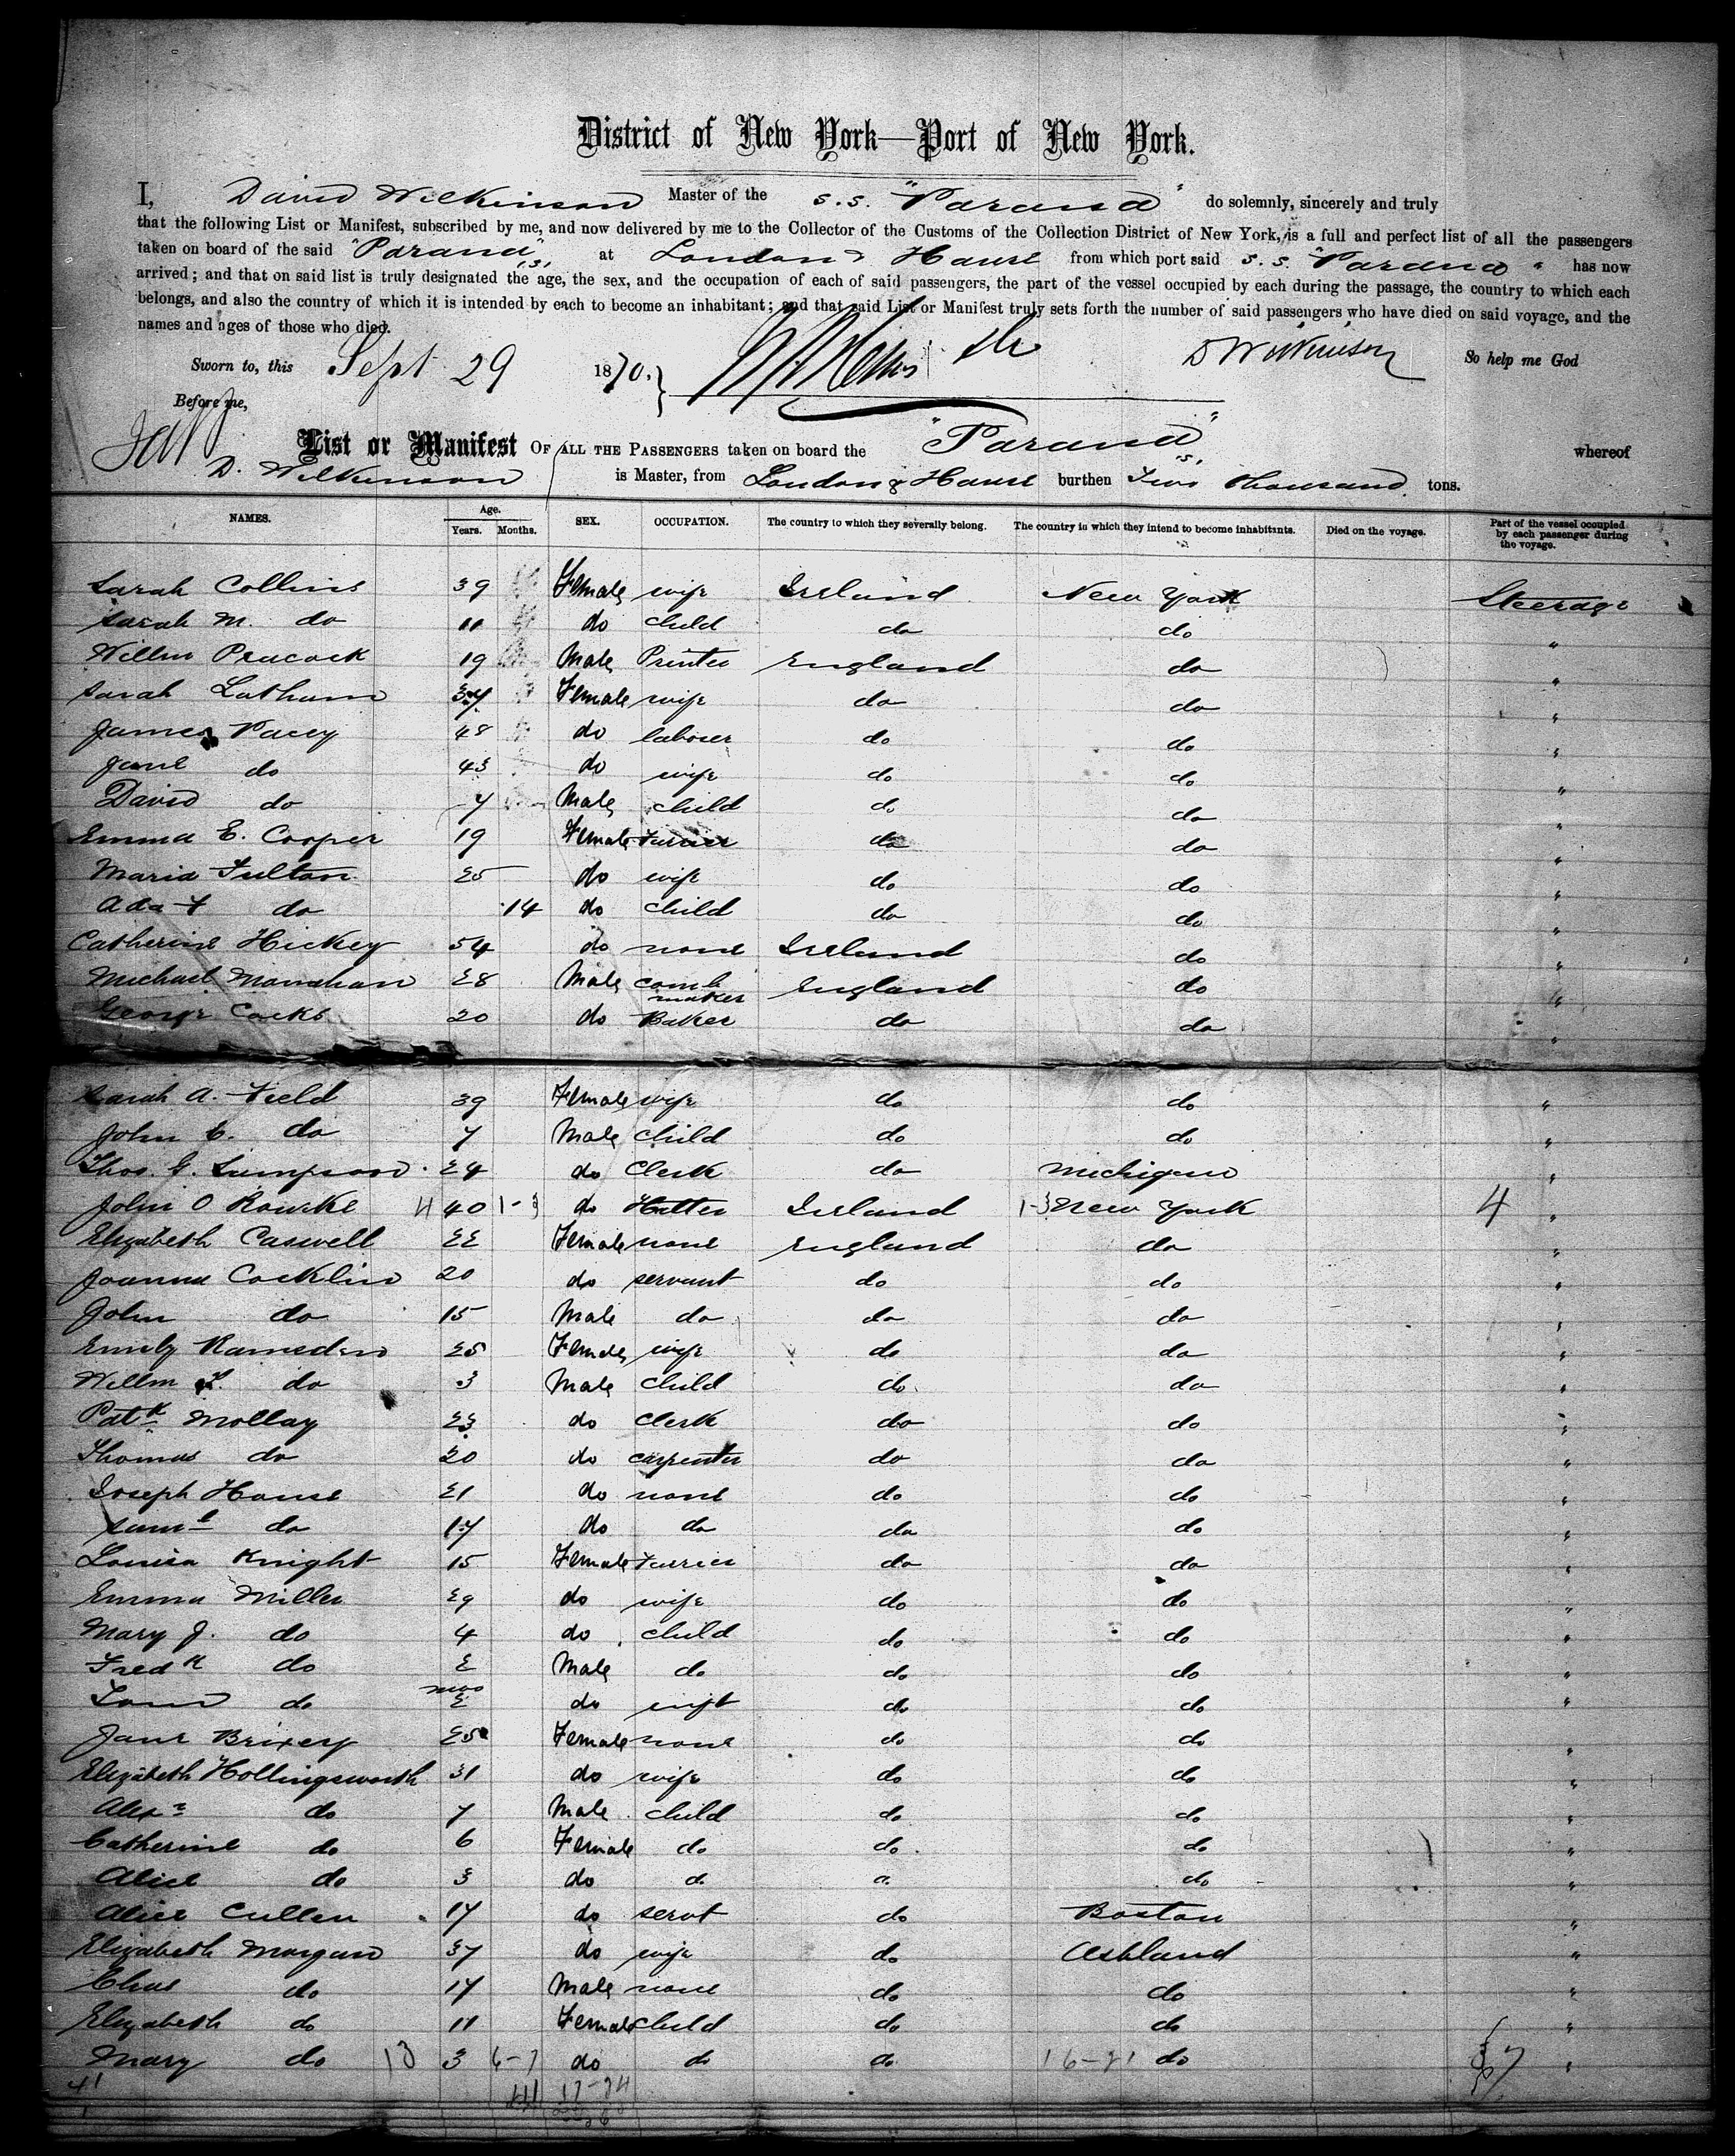 District of New York—Port of New York.
I, David Wilkinson Master of the s.s. "Parana" do solemnly, sincerely and truly
that the following List or Manifest, subscribed by me, and now delivered by me to the Collector of the Customs of the Collection District of New York, is a full and perfect list of all the passengers
taken on board of the said "Parana" at London & Havre from which port said s.s. "Parana" has now
arrived; and that on said list is truly designated the age, the sex, and the occupation of each of said passengers, the part of the vessel occupied by each during the passage, the country to which each
belongs, and also the country of which it is intended by each to become an inhabitant; and that said List or Manifest truly sets forth the number of said passengers who have died on said voyage, and the
names and ages of those who died.
Sworn to, this Sept 29 1870. D Wilkinson So help me God
Before me,
List or Manifest OF ALL THE PASSENGERS taken on board the "Parana" whereof
D. Wilkinson is Master, from London & Havre burthen Two thousand tons.
NAMES. Age. Years. Months. SEX. OCCUPATION. The country to which they severally belong. The country in which they intend to become inhabitants. Died on the voyage. Part of the vessel occupied by each passenger during the voyage.
Sarah Collins 39 Female wife Ireland New York Steerage
Sarah M. do 11 do child do do "
Willm Peacock 19 Male Printer England do "
Sarah Latham 37 Female wife do do "
James Pacey 48 do laborer do do "
Jane do 43 do wife do do "
David do 7 Male child do do "
Emma E. Cooper 19 Female Furrier do do "
Maria Fulton 25 do wife do do "
Ada F do 14 do child do do "
Catherine Hickey 54 do none Ireland do "
Michael Monahan 28 Male comb maker England do "
George Cocks 20 do Baker do do "
Sarah A. Field 39 Female wife do do "
John E. do 7 Male child do do "
Thos. G. Sampson 24 do Clerk do Michigan "
John O Rourke 40 do Hatter Ireland New York 4 "
Elizabeth Caswell 22 Female none England do "
Joanna Cocklin 20 do servant do do "
John do 15 Male do do do "
Emily Ramsden 25 Female wife do do "
Willm do 3 Male child do do "
Patk Mollay 23 do clerk do do "
Thomas do 20 do carpenter do do "
Joseph House 21 do none do do "
Saml do 17 do do do do "
Louisa Knight 15 Female Furrier do do "
Emma Miller 29 do wife do do "
Mary J. do 4 do child do do "
Fredk do 2 Male do do do "
do mos 2 do inft do do "
Jane Brixey 25 Female none do do "
Elizabeth Hollingsworth 31 do wife do do "
Alexr do 7 Male child do do "
Catherine do 6 Female do do do "
Alice do 3 do do do "
Alice Cullen 17 do servt do Boston "
Elizabeth Morgan 37 do wife do Ashland "
Chas do 17 Male none do do "
Elizabeth do 11 Female child do do "
Mary do 13 3 do do do do "
41